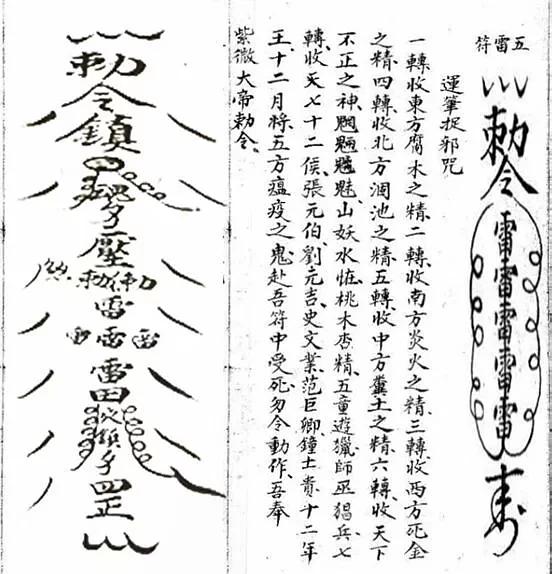 五雷符
勅令雷雷雷雷雷
運筆捉邪咒
一轉收東方腐木之精、二轉收南方炎火之精、三轉收西方死金
之精、四轉收北方溷池之精、五轉收中方糞土之精、六轉收天下
不正之神、魍魎魑魅、山妖水恠、桃木杏精、五童遊獵師巫猖兵、七
轉收天七十二侯、張元伯、劉元吉、史文業、范巨卿、鐘士貴、十二年
王、十二月將、五方瘟疫之鬼、赴吾符中受死、勿令動作、吾奉
紫微大帝勅令、
勅令鎮
壓
勅
雷
雷雷雷
雷
四正